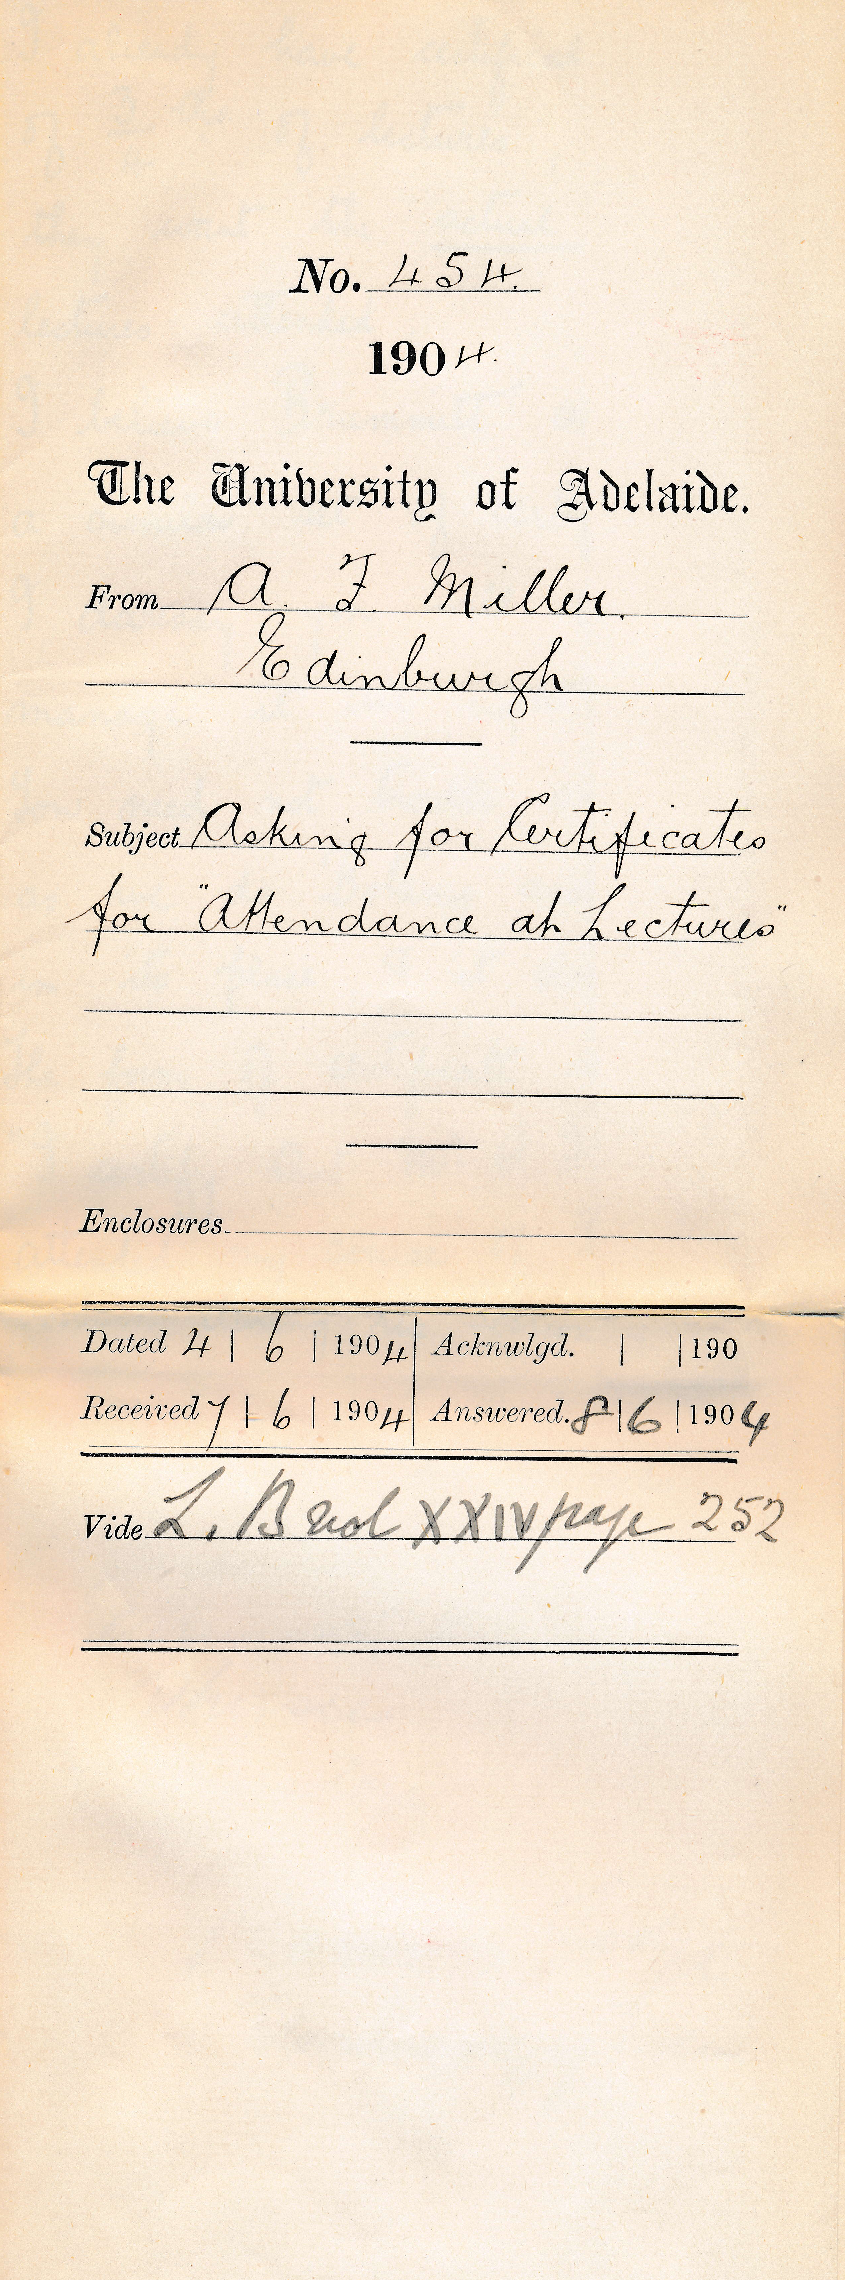 No. 454.
1904.
The University of Adelaide.
From A. F. Miller.
Edinburgh
Subject Asking for Certificates
for "Attendance at Lectures"
Enclosures
Dated 4 | 6 | 1904 Acknwlgd. | | 190
Received 7 | 6 | 1904 Answered. 8 | 6 | 1904
Vide L. B vol XXIV page 252